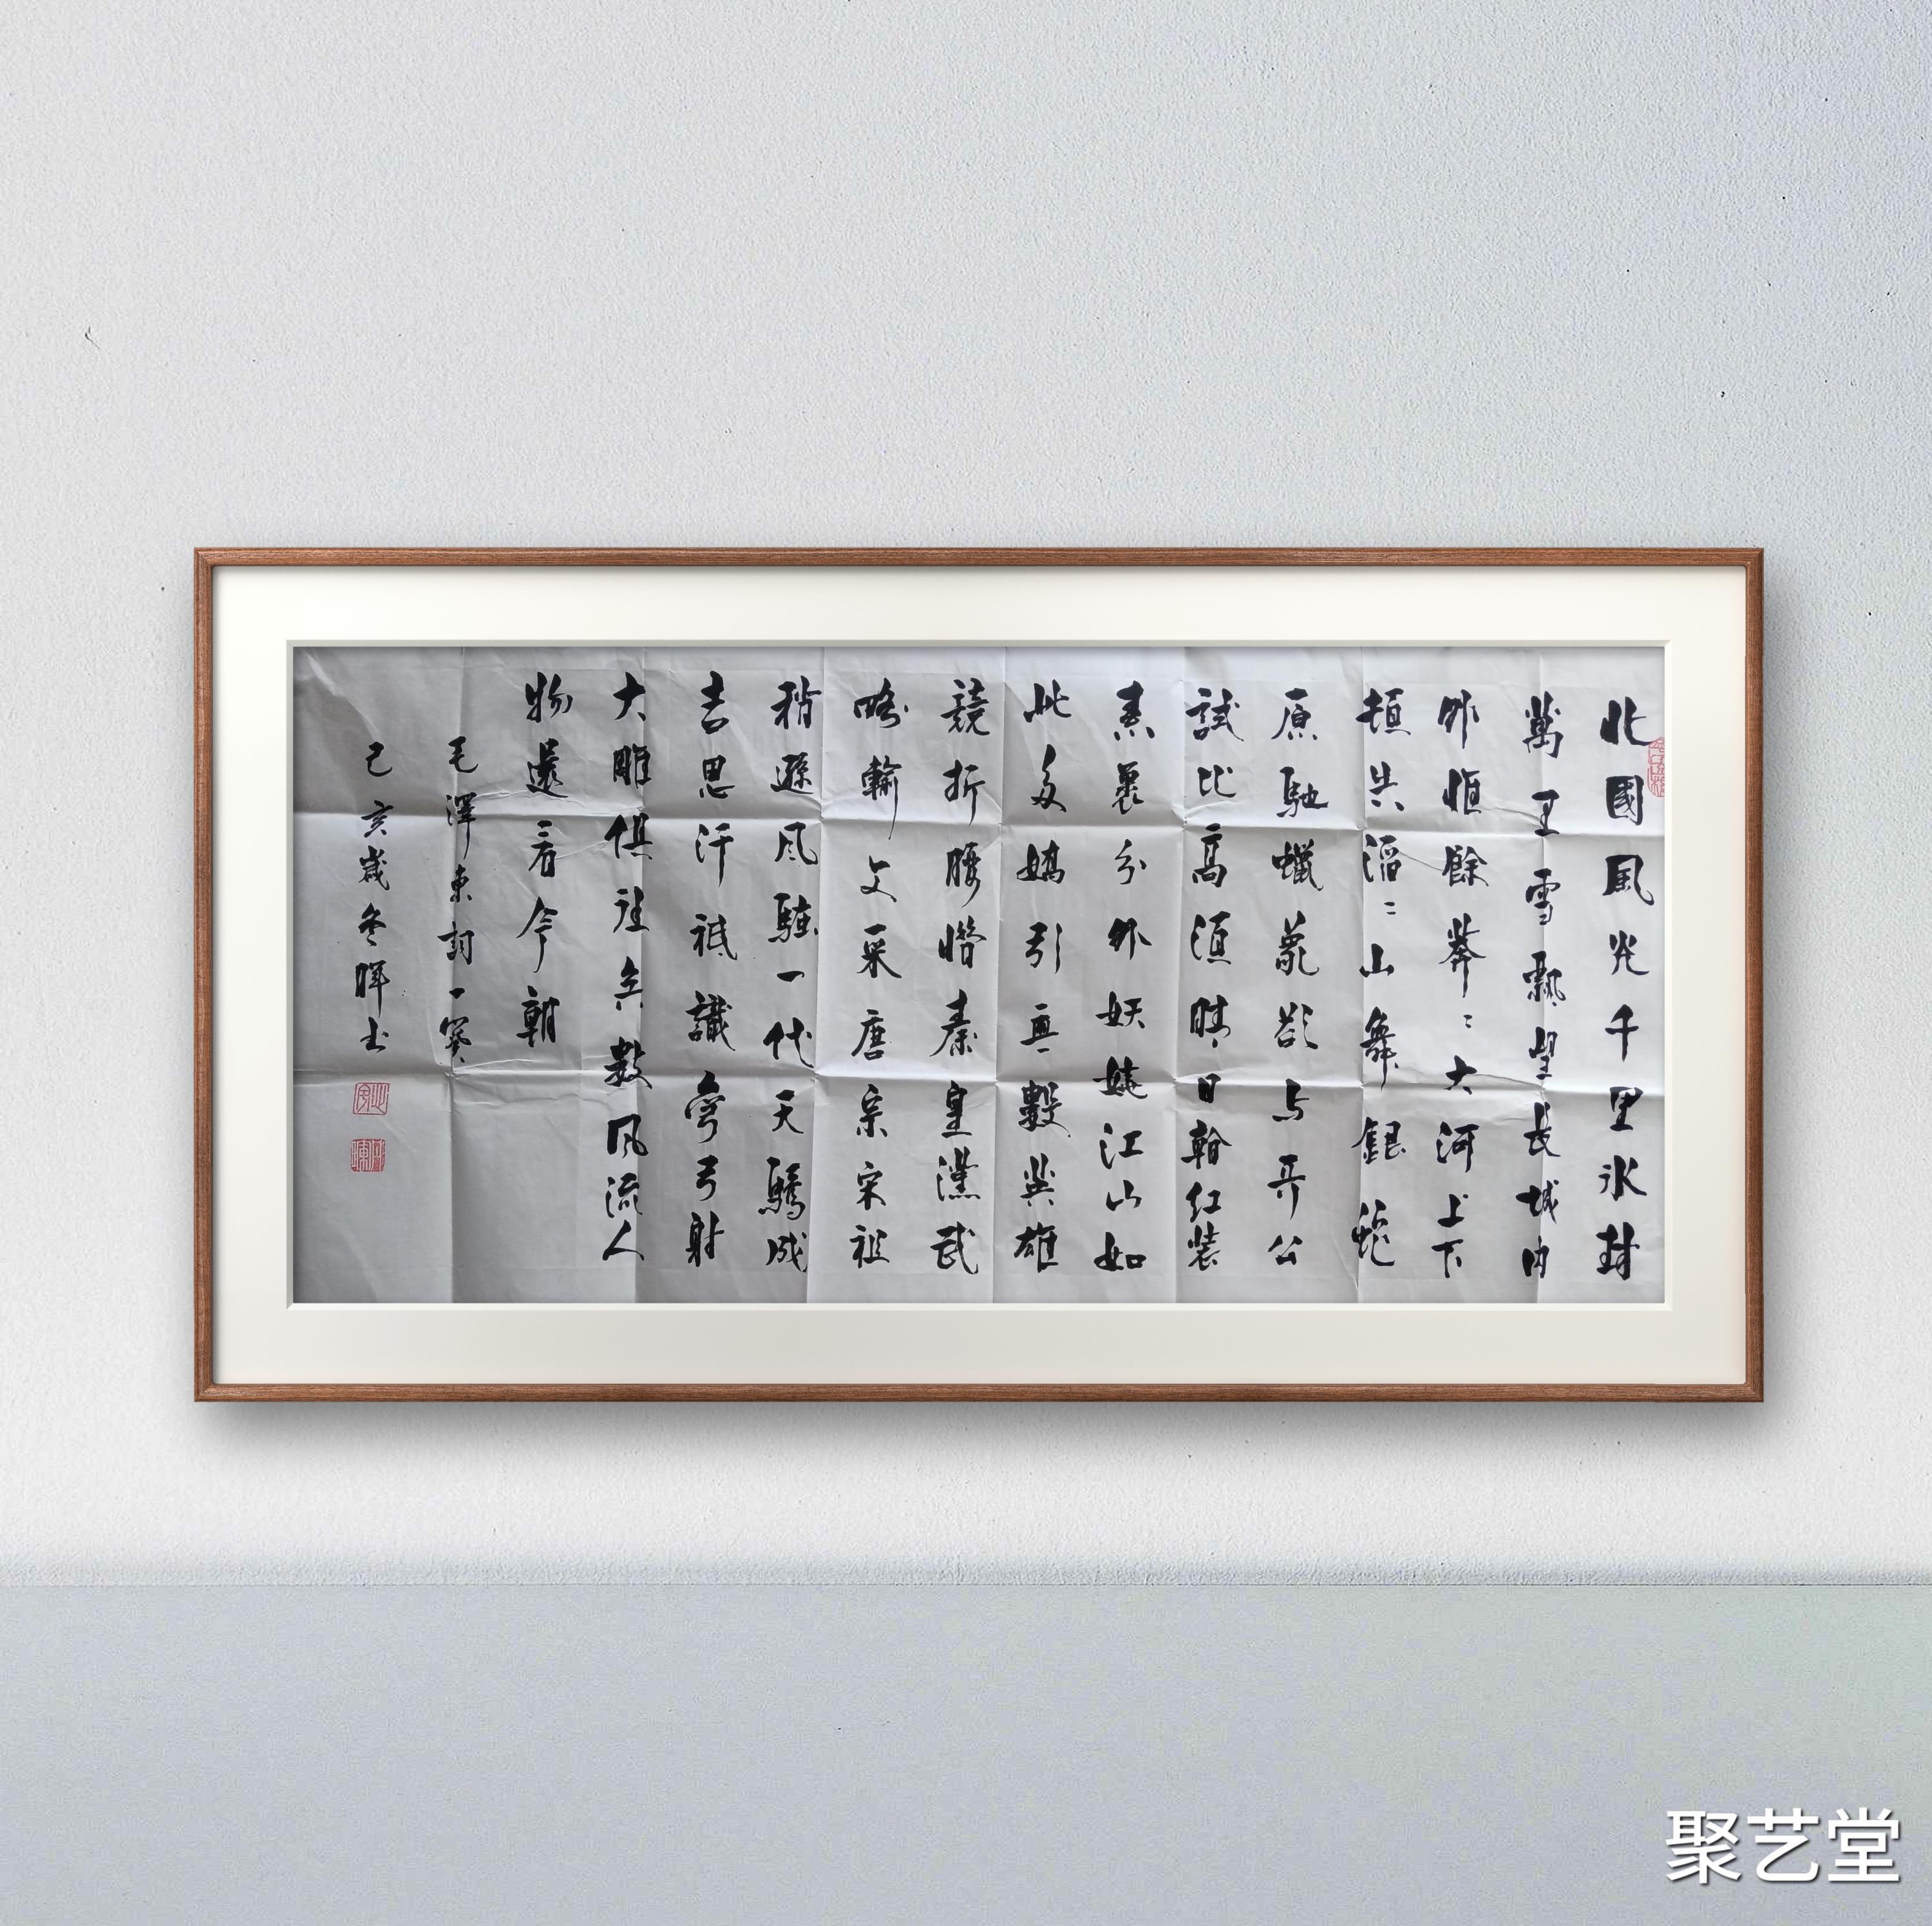 北國風光千里冰封
萬里雪飄望長城内
外惟餘莽〻大河上下
頓失滔〻山舞銀蛇
原馳蠟象欲与天公
試比高須晴日看红装
素裹分外妖嬈江山如
此多嬌引無數英雄
競折腰惜秦皇漢武
略輸文采唐宗宋祖
稍遜風騷一代天驕成
吉思汗祗識彎弓射
大雕俱往矣數風流人
物還看今朝
毛澤東詞一
己亥歲冬暉书
聚艺堂